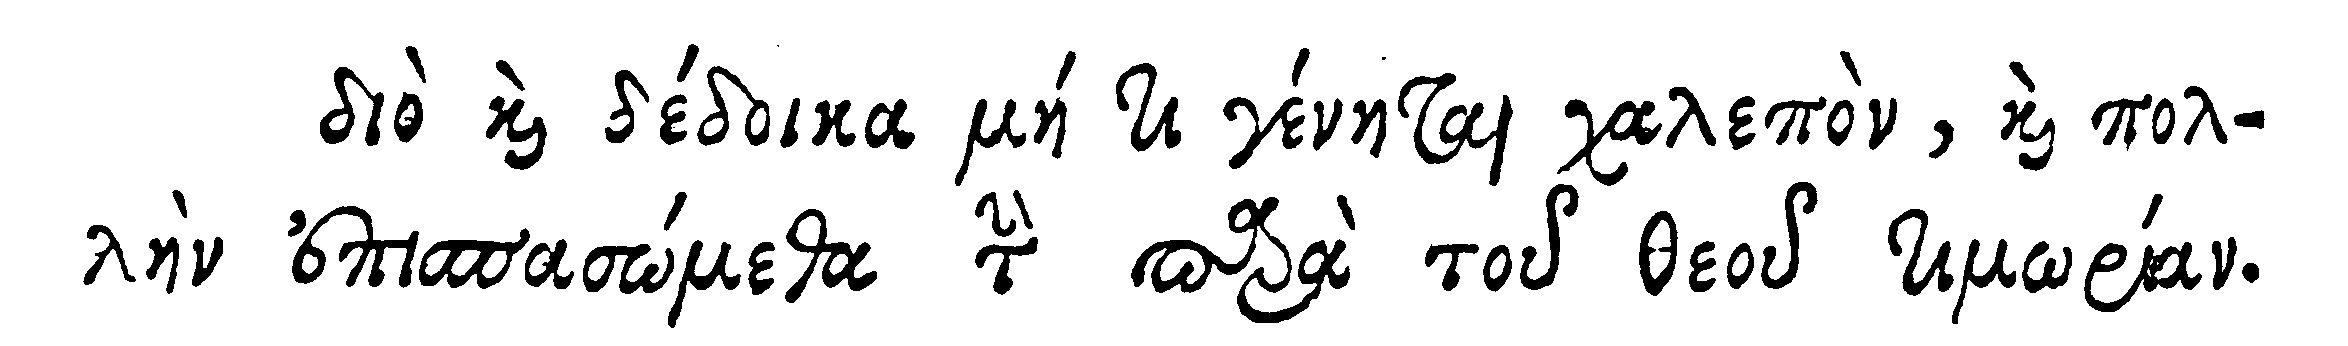 διὸ ϗ̀ δέδοικα μή τι γένηται χαλεπὸν, ϗ̀ πολ-
λὴν ἐπισπασώμεθα τὴν παρὰ τοῦ θεοῦ τιμωρίαν.